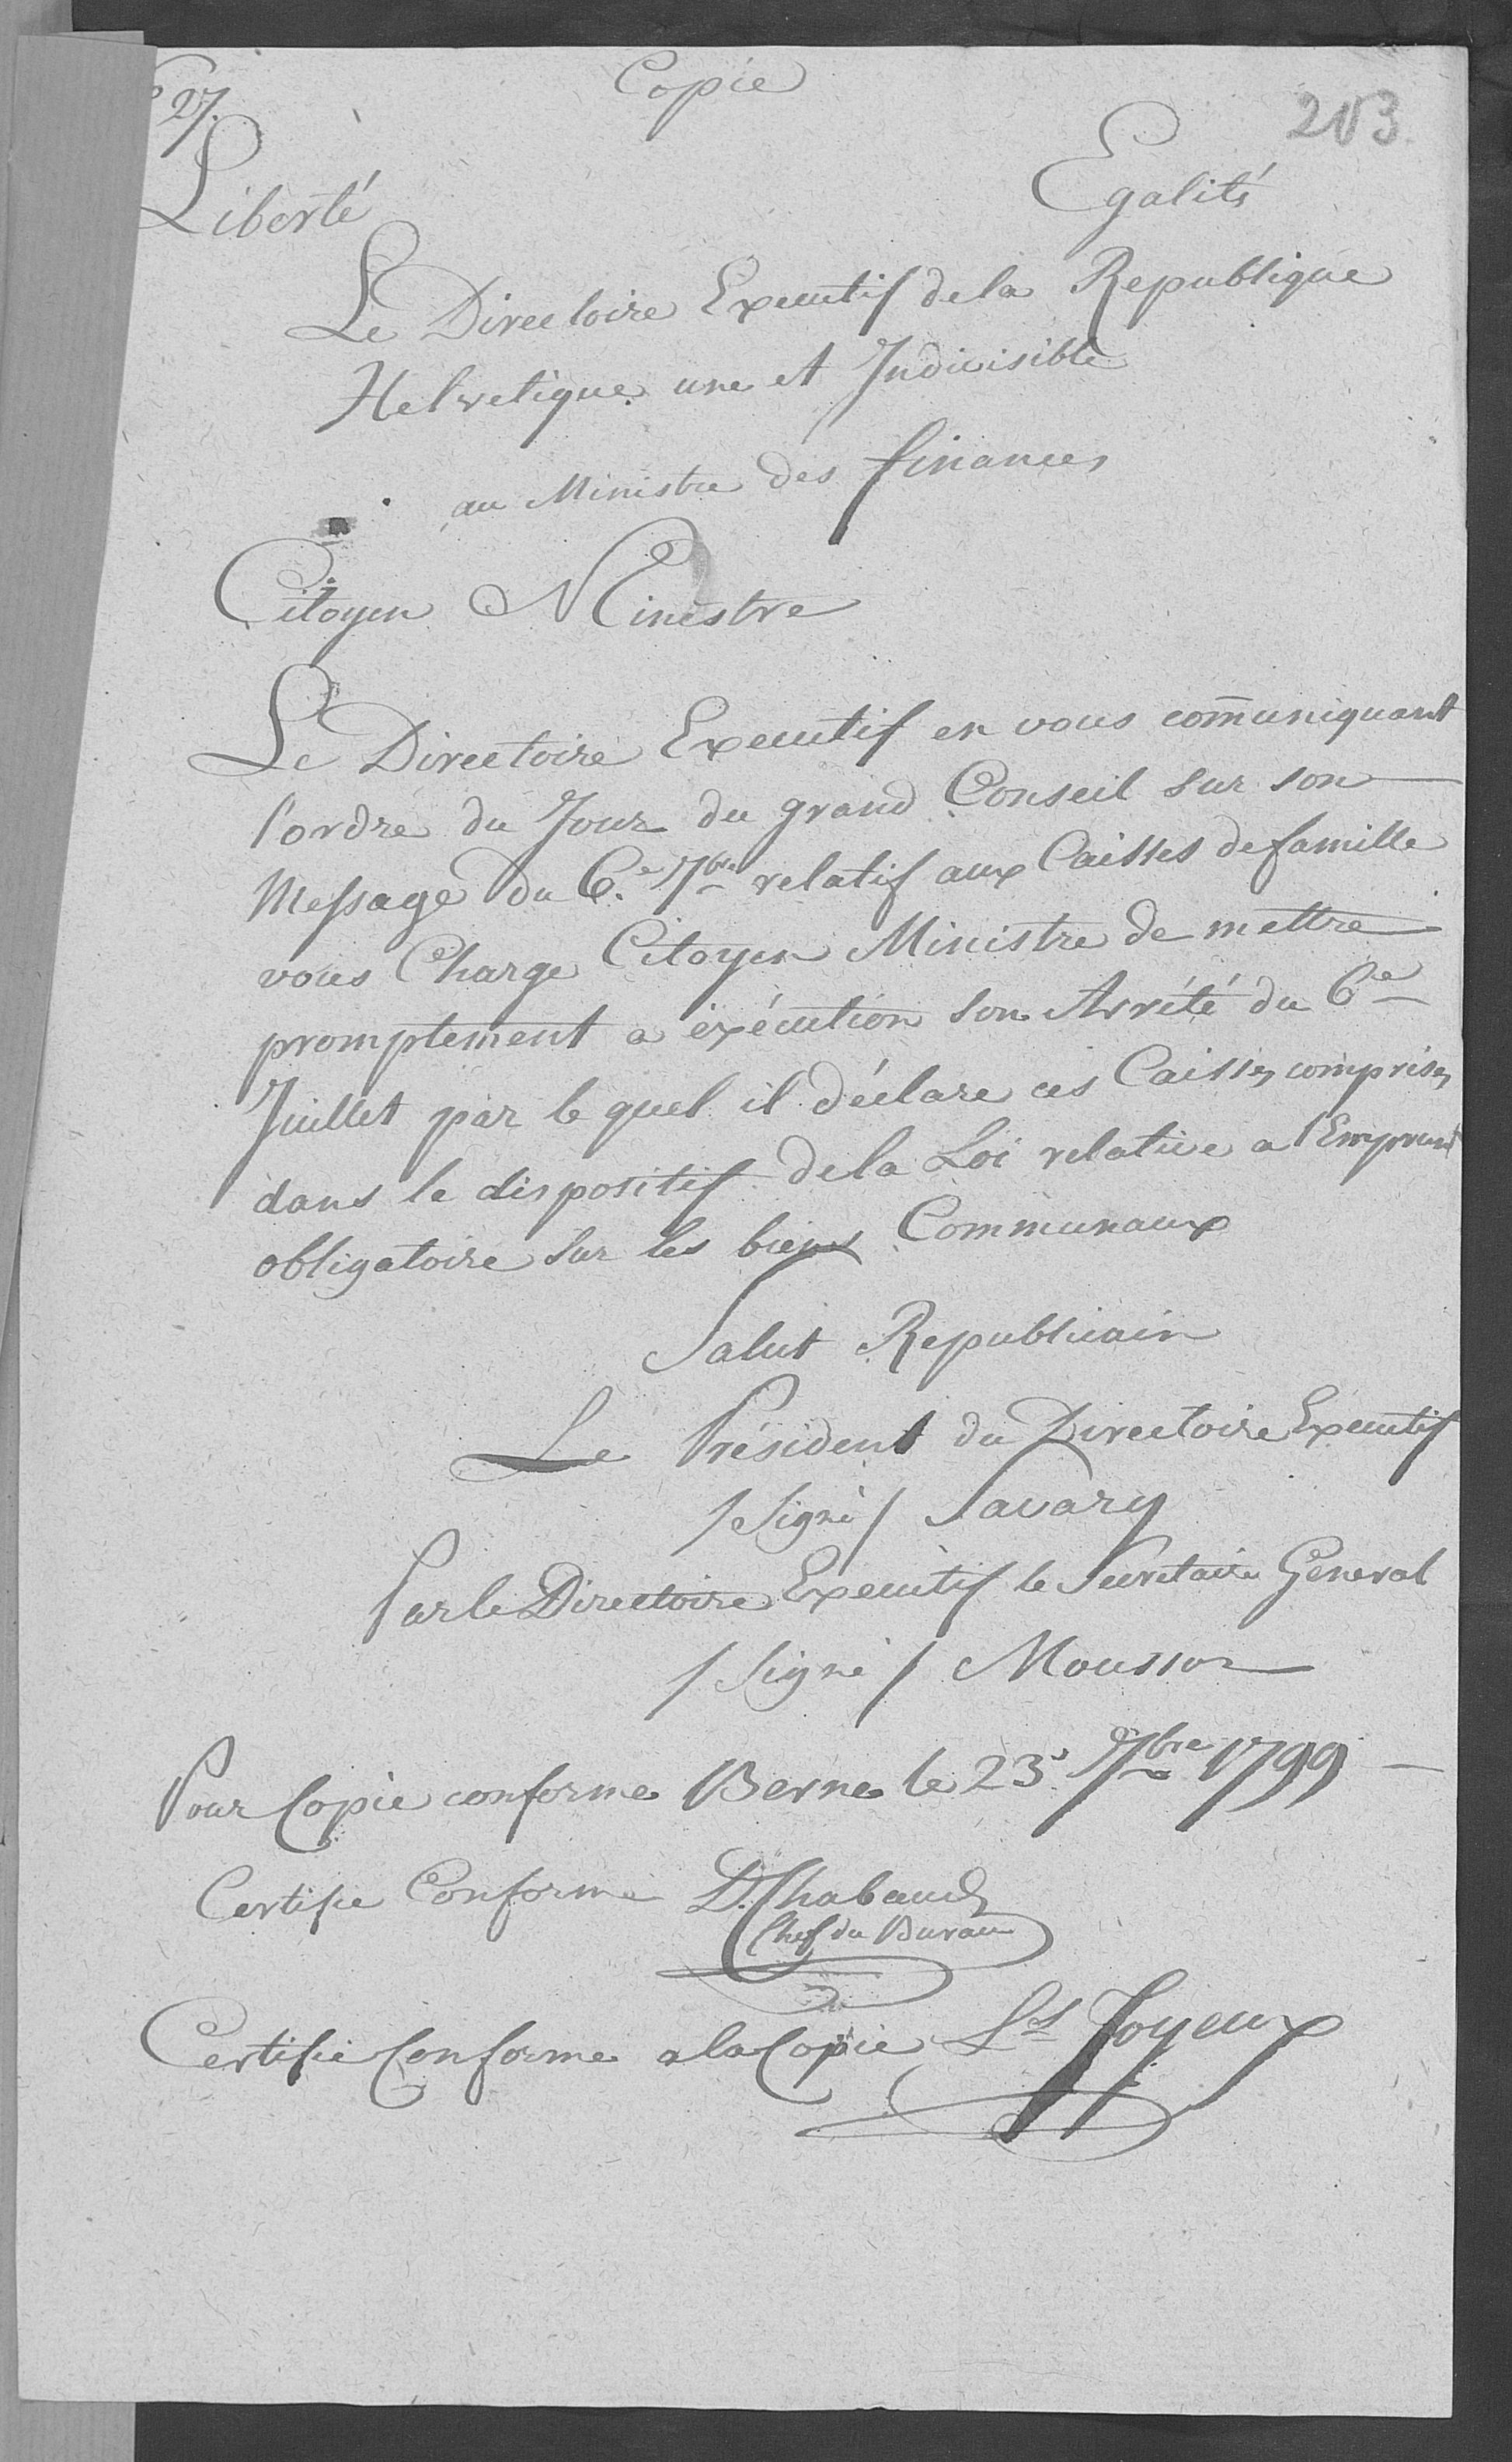 Copie
27.
203
Liberté Egalité
Le Directoire Executif de la Republique
Helvetique une et Indivisible
au Ministre des finances
Citoyen Ministre
Le Directoire Executif en vous com̄uniquant
l'ordre du Jour du grand Conseil sur son
Message du 6.e 7bre relatif aux Caisses de famille
vous Charge Citoyen Ministre de mettre
promptement a éxécution son Arrété du 6e
Juillet par le quel il déclare ces Caisses comprises
dans le dispositif de la Loi relative a l'Emprunt
obligatoire sur les biens Communaux
Salut Republicain
Le Président du Directoire Executif
/Signé/ Savary
Par le Directoire Executif le Secretaire General
/Signé/ Mousson
Pour Copie conforme Berne le 23e 7bre 1799
Certifie Conforme D. Chabaud
Chef du Bureau
Certifié Conforme a la Copie Ls Joyeux